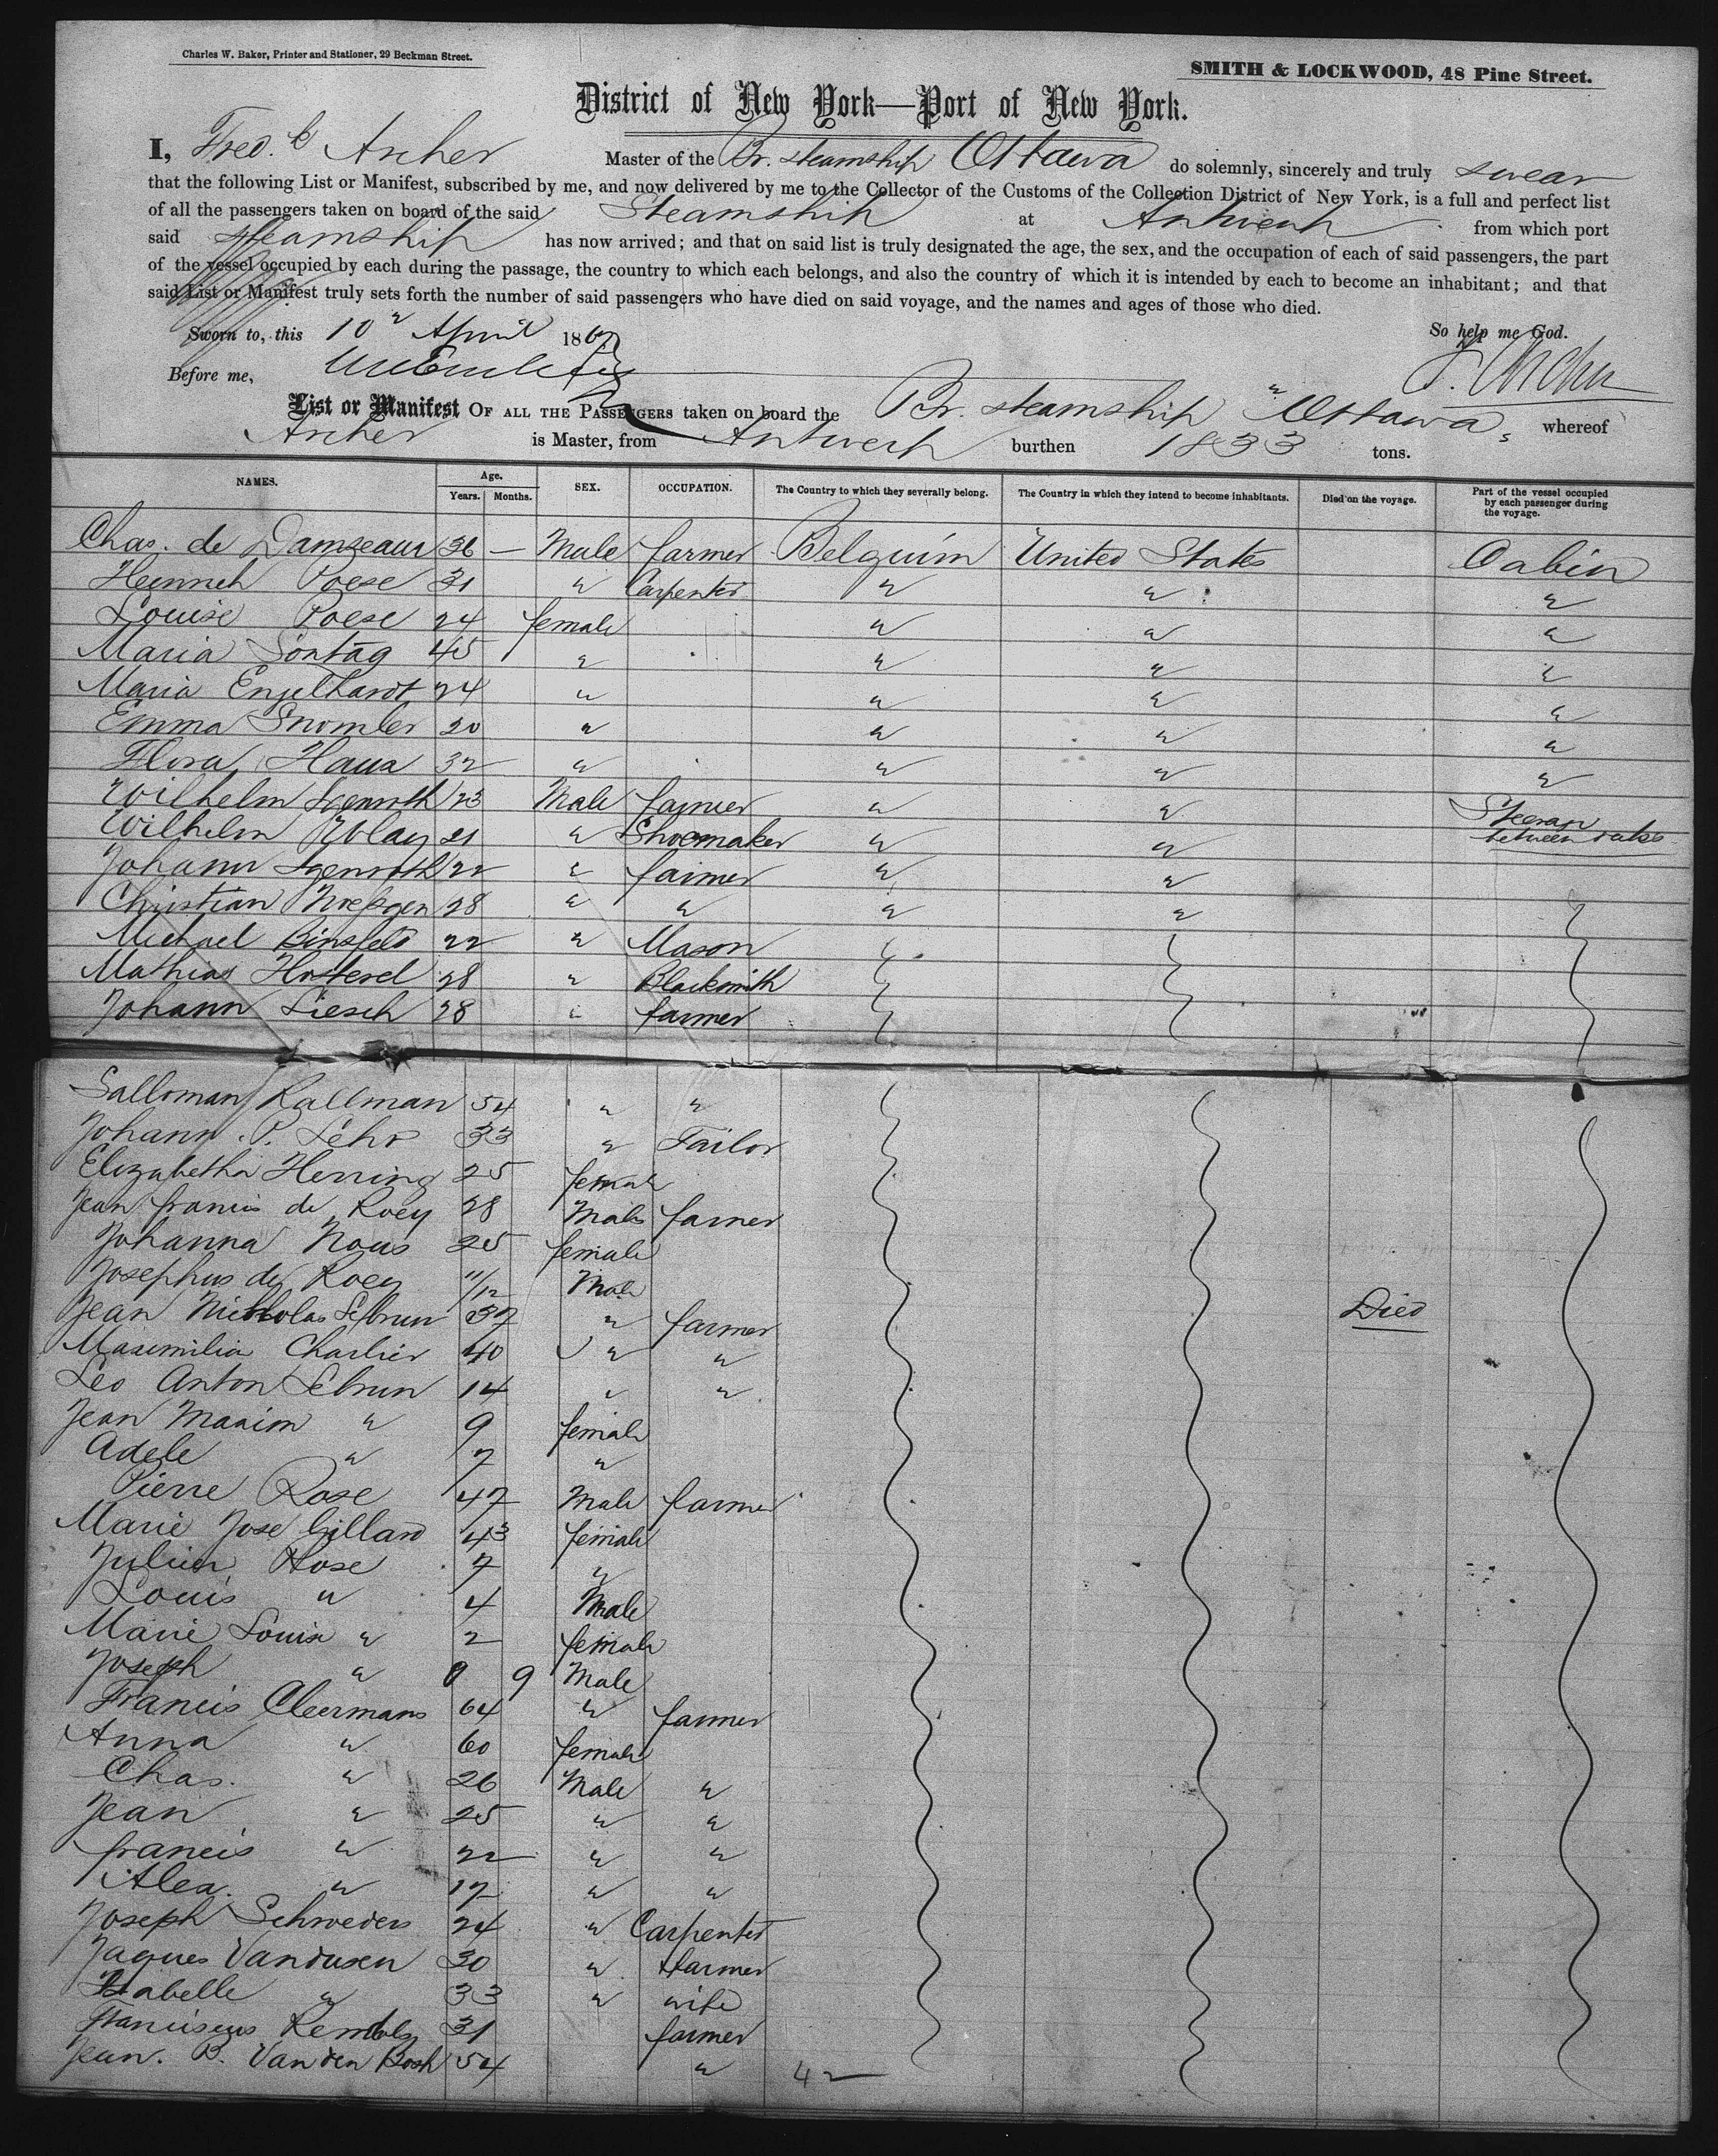 Charles W. Baker, Printer and Stationer, 29 Beekman Street.
SMITH & LOCKWOOD, 48 Pine Street.
District of New York—Port of New York.
I, Fred. Archer Master of the Br. steamship Ottawa do solemnly, sincerely and truly swear
that the following List or Manifest, subscribed by me, and now delivered by me to the Collector of the Customs of the Collection District of New York, is a full and perfect list
of all the passengers taken on board of the said Steamship at Antwerp from which port
said steamship has now arrived; and that on said list is truly designated the age, the sex, and the occupation of each of said passengers, the part
of the vessel occupied by each during the passage, the country to which each belongs, and also the country of which it is intended by each to become an inhabitant; and that
said List or Manifest truly sets forth the number of said passengers who have died on said voyage, and the names and ages of those who died.
So help me God.
Sworn to, this 10 April 186
F. Archer
Before me,
List or Manifest OF ALL THE PASSENGERS taken on board the Br. steamship "Ottawa" whereof
Archer is Master, from Antwerp burthen 1833 tons.
NAMES. Age. Years. Months. SEX. OCCUPATION. The Country to which they severally belong. The Country in which they intend to become inhabitants. Died on the voyage. Part of the vessel occupied by each passenger during the voyage.
Chas. de Damzeaux 36 — Male farmer Belguim United States Cabin
Heinrich Poese 31 " Carpenter " " "
Louise Poese 24 female " " "
Maria Sontag 45 " " " "
Maria Engelhardt 24 " " " "
Emma 20 " " " "
Flora Haua 32 " " " "
Wilhelm 23 Male farmer " " Steerage
between decks
Wilhelm 21 " Shoemaker " "
Johann 22 " farmer " "
Christian 28 " " " "
Michael Binsfeld 22 " Mason
Mathias Hosterd 28 " Blacksmith
Johann Liesch 28 " farmer
Salloman Kallman 54 " "
Johann. P. Lehr 33 " Tailor
Elizabetha Herring 25 female
Jean francis de Roey 28 Male farmer
Johanna Nous 25 female
Josephus de Roey 11/12 Male
Jean Nicholas Lebrun 37 " farmer Died
Maximilia Charlier 40 " "
Leo Anton Lebrun 14 " "
Jean Maxim " 9 female
Adele " 7 "
Pierre Rose 47 Male farmer
Marie Jose Gillard 43 female
Julien Rose 7 "
Louis " 4 Male
Marie Louise " 2 female
Joseph " 0 9 Male
Francis Cleermans 64 " farmer
Anna " 60 female
Chas. " 26 Male "
Jean " 25 " "
francis " 22 " "
Alex. " 17 " "
Joseph Schroeders 24 " Carpenter
Jaques Vandusen 30 " farmer
Isabelle " 33 " wife
Franciscus 31 farmer
Jean. B. Van den Bosh 54 " 42